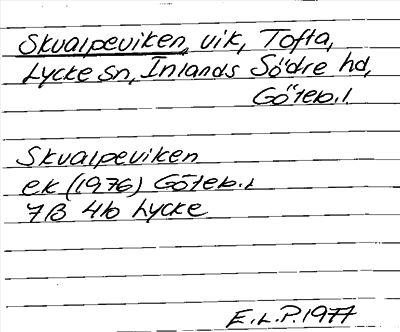 Skvalpeviken, vik, Tofta,
Lycke sn, Inlands Södre hd,
Göteb. l.
Skvalpeviken
ek (1976) Göteb. l
7B 4b Lycke
E.L.P. 1977